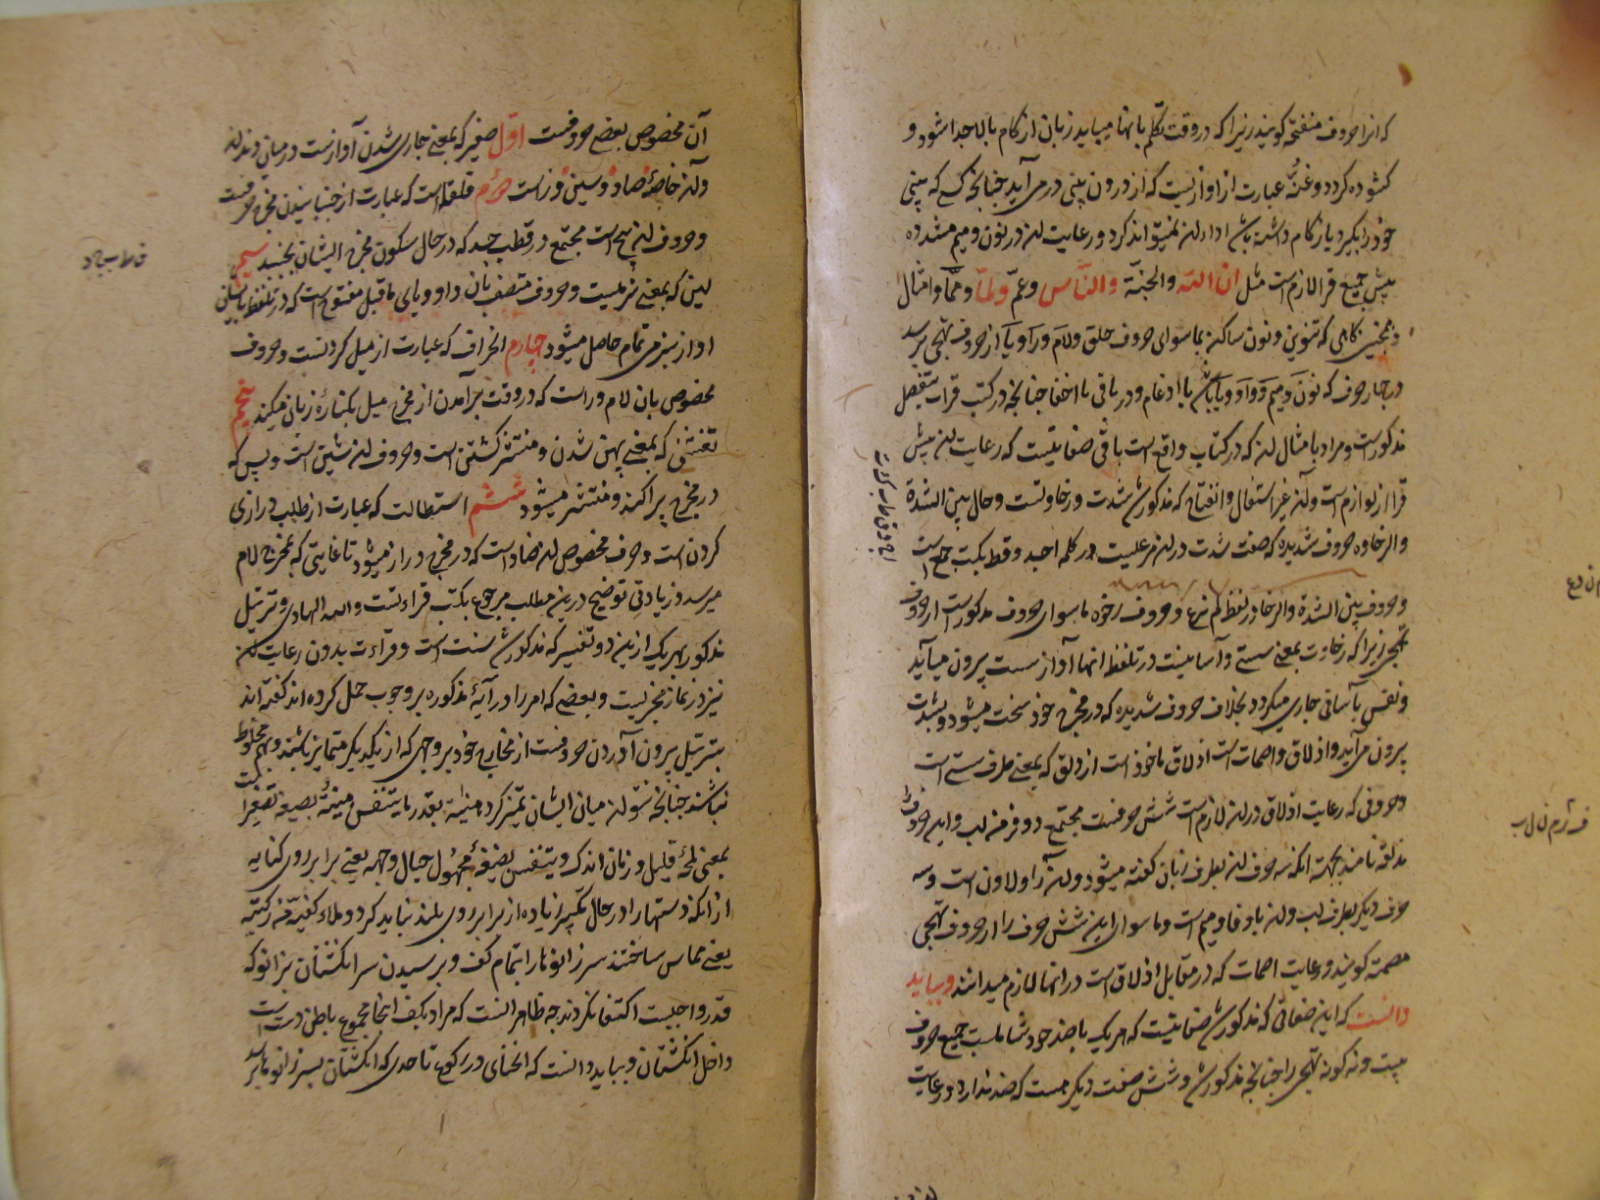 که انرا حروف منفتحه گویند زیرا که در وقت تکلم بانها میباید زبان از کام بالا جدا شود و
کشوده کردد و غنّه عبارت از اوازیست که از درون بینی در می آید چنانچه کسی که بینی
خود را بگیرد یا زکام داشته باشد اداء ان نمیتواند کرد و رعایت ان در نون و میم مشدده
پیش جمیع قرا لازم است مثل ان الله والجنّة والنّاس وعمّ ولمّا وممّا و امثال
و همچنین کاهی که تنوین و نون ساکنه بماسوای حروف حلق و لام و را و یا از حروف تهجی برسد
در چار حرف که نون و میم و واو و یا باشد با ادغام و در باقی با اخفا چنانچه در کتب قرات بتفصیل
مذکور است و مراد بامثال ان که در کتاب واقع است باقی صفاتیست که رعایت ان پیش
قرا از لوازم است و ان غیر استعلا و انفتاح که مذکور شد شدت و رخاوتست و حال بین الشدة
والرخاوه حروف شدیده که صفت شدت در ان مرعیست در کلمه اجد و قط بکت جمع است
و حروف بین الشدة والرخا در لفظ لم نرع و حروف رخوه ماسوای حروف مذکور است از حروف
تهجی زیرا که رخاوت بمعنی سستی و آسانیست در تلفظ انها آواز سست بیرون میآید
و نفس بآسانی جاری میکردد بخلاف حروف شدیده که در مخرج خود سخت میشود و بشدت
بیرون می آید و اذلاق و اصمات است اذلاق ماخوذ است از ذلق که بمعنی طرف است
و حروفی که رعایت اذلاق در ان لازم است شش حرفست مجتمع در فر من لب و این حروف را
مذلقه نامند بجهة انکه سه حرف ان بطرف زبان کفته میشود و ان را و لام و نون است و سه
حرف دیکر بطرف لب و ان با و فا و میم است و ماسوای این شش حرف را از حروف تهجی
مصمته کویند و رعایت اصمات که در مقابل اذلاق است در انها لازم میدانند و بباید
دانست که این صفاتی که مذکور شد صفاتیست که هر یک با ضد خود شاملست جمیع حروف
بیست و نه کونه تهجی را چنانچه مذکور شد و شش صفت دیکر هست که ضد ندارد و رعایت
آن مخصوص بعضی حروفست اوّل صفیر که بمعنی جاری شدن آوازست در میان دندان
و ان خاصّه صاد و سین و زاست دویم قلقله است که عبارت از جنبانیدن مخرج حرفست
و حروف ان پنج است مجتمع در قطب جد که در حال سکون مخرج ایشان بجنبد سیم
لین که بمعنی نرمیست و حروف متصف بان واو و یای ماقبل مفتوح است که در تلفظ بایشان
اواز بنرمی تمام حاصل میشود چهارم انحراف که عبارت از میل کردنست و حروف
مخصوص بان لام و راست که در وقت برآمدن از مخرج میل بکناره زبان میکند پنجم
تفشّی که بمعنی پهن شدن و منتشر کشتن است و حروف ان شین است و بس که
در مخرج پراکنده و منتشر میشود ششم استطالت که عبارت از طلب درازی
کردن است و حرف مخصوص ان ضاد است که در مخرج دراز میشود تا غایتی که بمخرج لام
میرسد و زیادتی توضیح درین مطلب مرجوع بکتب قراءتست والله الهادی و ترتیل
مذکور بهر یک ازین دو تفسیر که مذکور شد سنت است و قراءت بدون رعایت ان
نیز در نماز مجزیست و بعضی که امر را در آیه مذکوره بر وجوب حمل کرده اند کفته اند
مراد بترتیل بیرون آوردن حروفست از مخارج خود بر وجهی که از یکدیکر متمایز باشند و بهم مخلوط
نباشند چنانچه نتوان میان ایشان تمیز کرد هنیئة بقدر ما یتنفس هنیئة بصیغه تصغیر است
بمعنی لمحه قلیل و زمان اندک و یتنفس بصیغه مجهول حیال وجهه یعنی برابر روی کنایه
از انکه دستها را در حال تکبیر زیاده از برابر روی بلند نباید کرد و ملاء کفیه من رکبتیه
یعنی مماس ساختند سر زانوها را بتمام کف و برسیدن سر انکشتان بزانو که
قدر واجبست اکتفا نکردند چه ظاهر انست که مراد بکف اینجا مجموع باطن دست است
داخل انکشتان و بباید دانست که انحنای در رکوع تا حدی که انکشتان بسر زانوها برسد